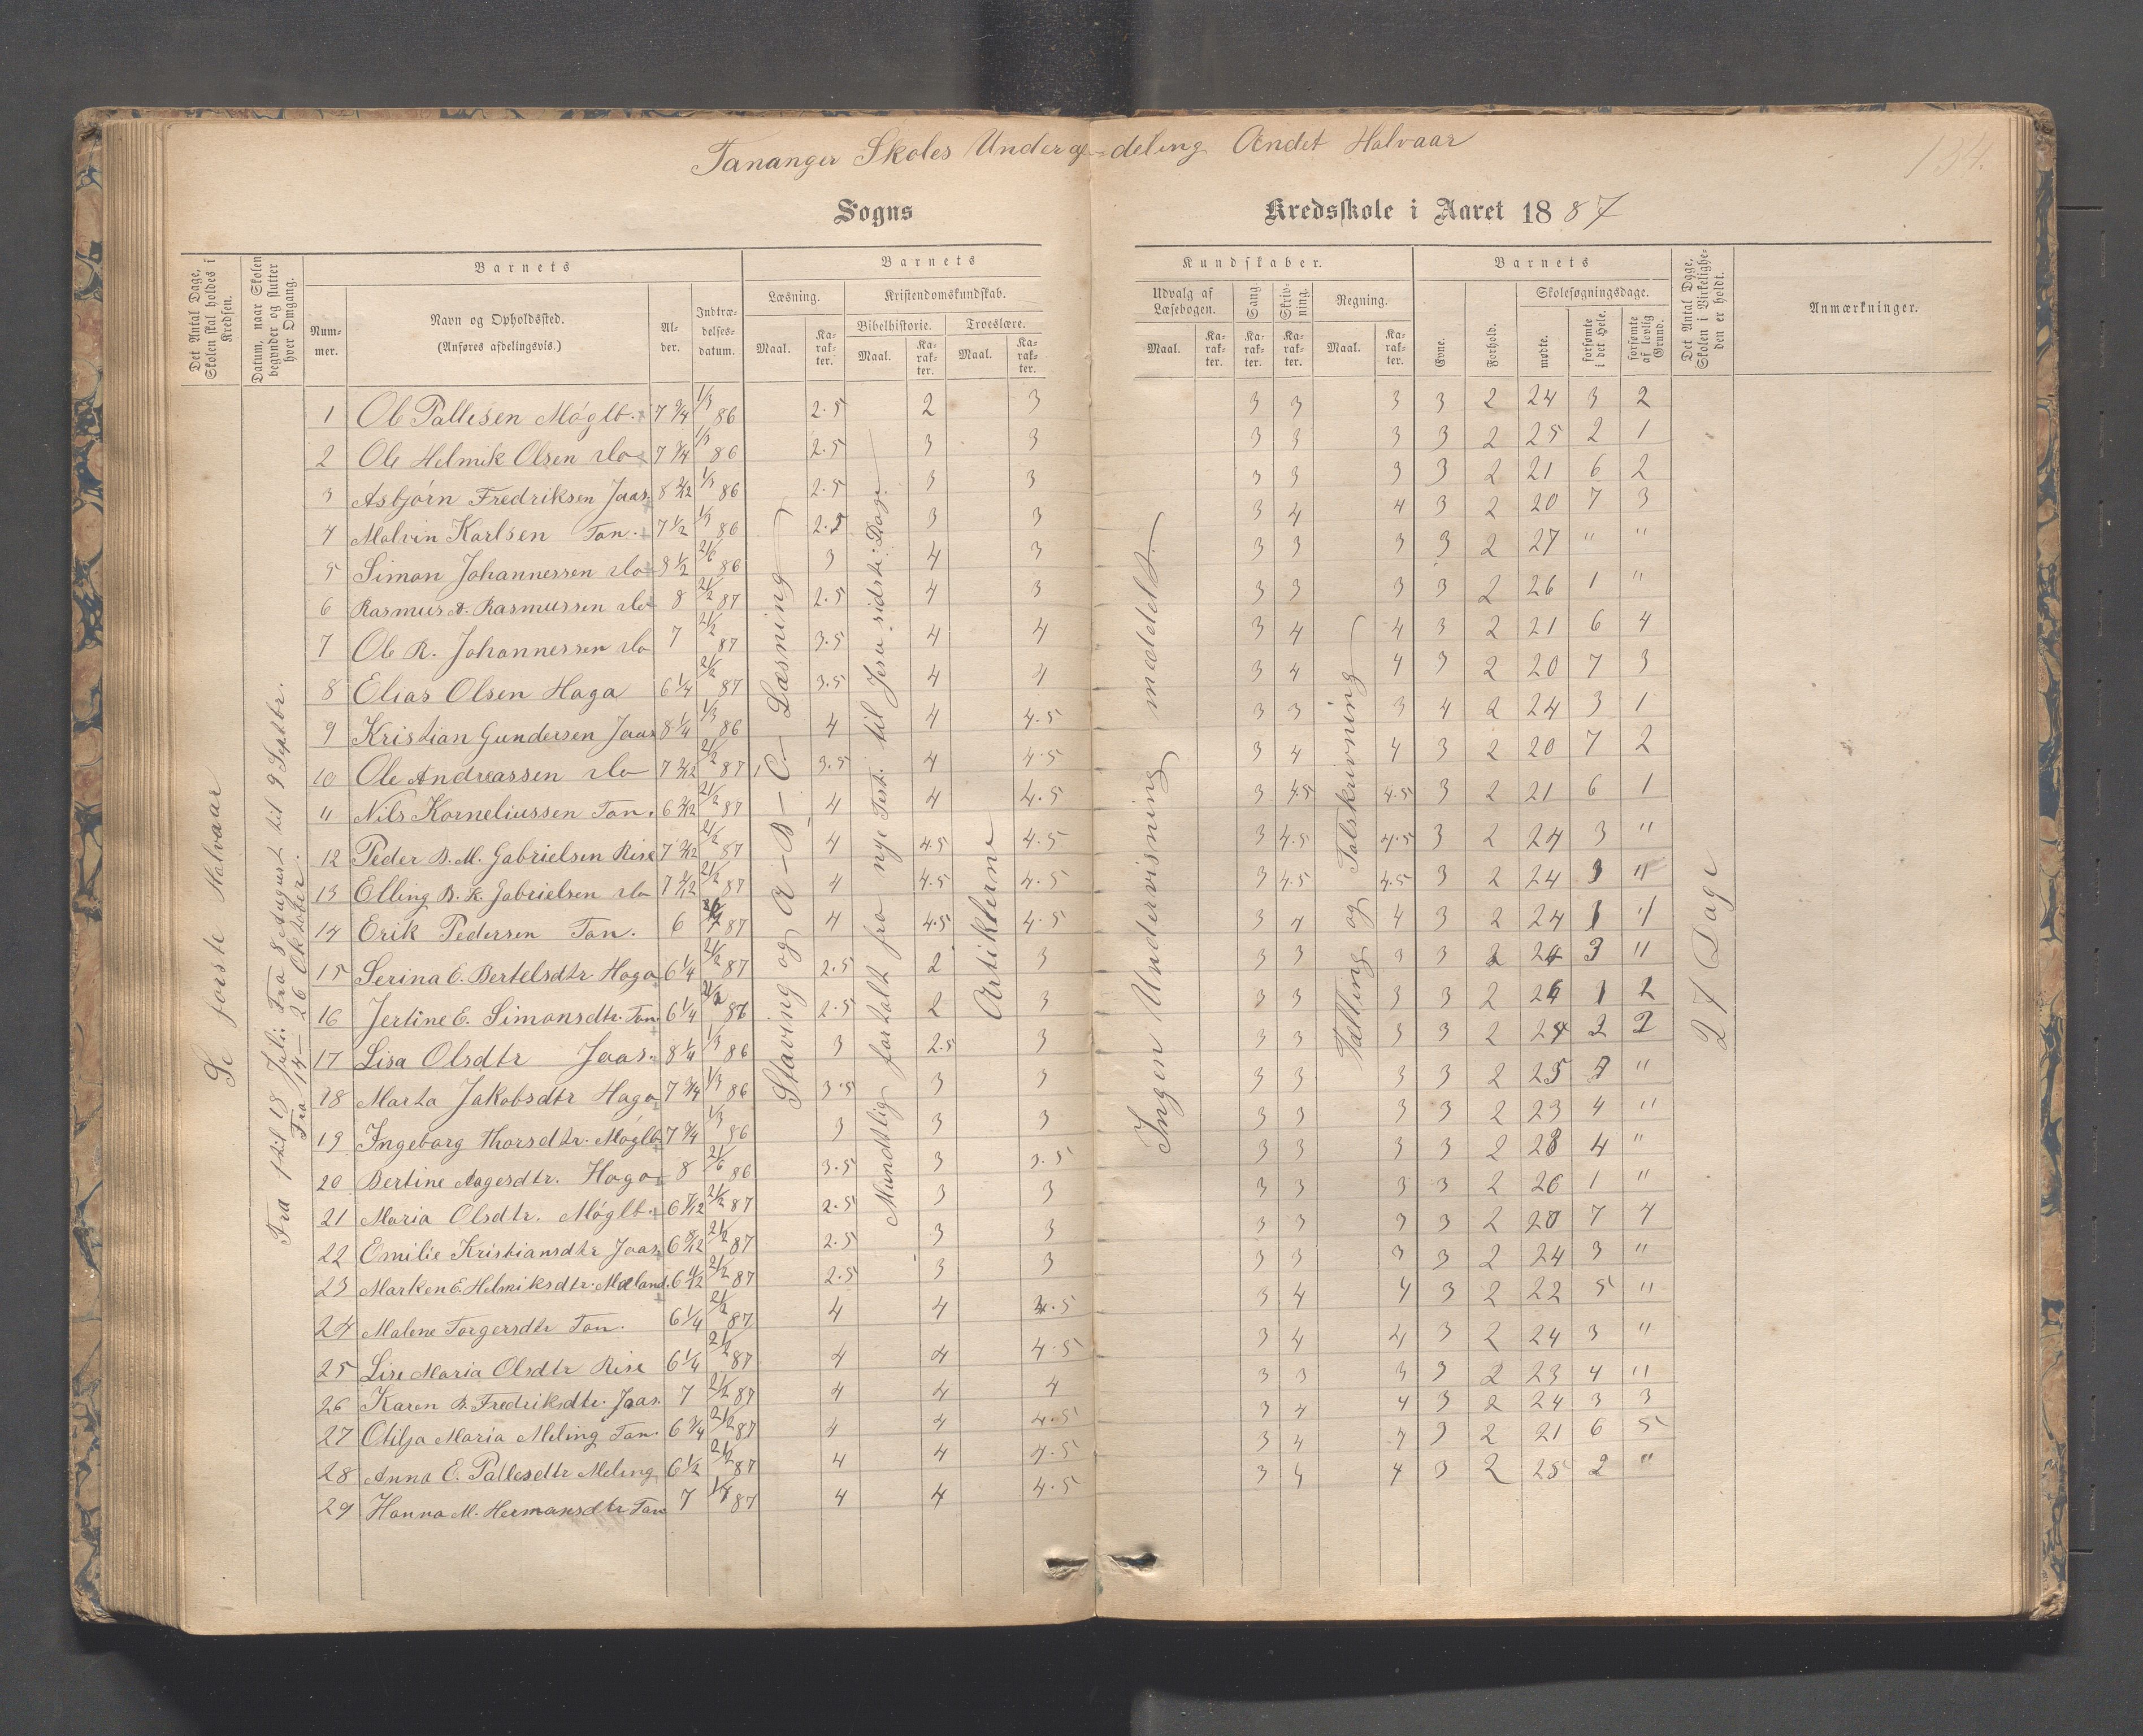 Tananger Skoles Underafdeling Andet Halvaar
134.
Sogns Kredsskole i Aaret 1887
Det Antal Dage, Skolen skal holdes i Kredsen.
Datum, naar Skolen begynder og slutter hver Omgang.
Barnets
Barnets
Kundskaber.
Barnets
Det Antal Dage, Skolen i Virkeligheden er holdt.
Anmærkninger.
Nummer.
Navn og Opholdssted.
(Anføres afdelingsvis.)
Alder.
Indtrædelsesdatum.
Læsning.
Kristendomskundskab.
Bibelhistorie.
Troeslære.
Udvalg af Læsebogen.
Sang.
Skrivning.
Regning.
Evne.
Forhold.
Skolesøgningsdage.
mødte.
forsømte i det Hele.
forsømte af lovlig Grund.
Maal. Karakter. Maal. Karakter. Maal. Karakter.
Maal. Karakter. Karakter. Karakter. Maal. Karakter.
Se første Halvaar
Fra 1 til 18 Juli: Fra 8 August til 9 Septbr.
Fra 14 — 26 Oktober.
Staving og A-B-C- Læsning
Mundtlig fortalt fra nye Test. til Jesu sidste Dage
Artiklerne
Ingen Undervisning meddelt.
Tælling og Talskrivning
27 Dage
1 Ole Pallesen Møglb. 7 3/4 1/3 86 2.5 2 3 3 3 3 3 2 24 3 2
2 Ole Helmik Olsen do 7 3/4 1/3 86 2.5 3 3 3 3 3 3 2 25 2 1
3 Asbjørn Fredriksen Jaas. 8 2/12 1/3 86 2.5 3 3 3 3 3 3 2 21 6 2
4 Malvin Karlsen Tan. 7 1/2 1/3 86 2.5 3 3 3 4 4 3 2 20 7 3
5 Simon Johannessen do 8 1/2 21/6 86 3 4 3 3 3 3 3 2 27 " "
6 Rasmus A. Rasmussen do 8 21/2 87 2.5 4 3 3 3 3 3 2 26 1 "
7 Ole R. Johannessen do 7 21/2 87 3.5 4 4 3 4 4 3 2 21 6 4
8 Elias Olsen Haga 6 1/4 21/2 87 3.5 4 4 3 4 4 3 2 20 7 3
9 Kristian Gundersen Jaas 8 1/4 1/3 86 4 4 4.5 3 3 3 4 2 24 3 1
10 Ole Andreassen do 7 2/12 21/2 87 3.5 4 4.5 3 4 4 3 2 20 7 2
11 Nils Korneliussen Tan. 6 2/12 21/2 87 4 4 4.5 3 4.5 4.5 3 2 21 6 1
12 Peder B. M. Gabrielsen Risa 7 2/12 21/2 87 4 4.5 4.5 3 4.5 4.5 3 2 24 3 "
13 Elling B. K. Gabrielsen do 7 2/12 21/2 87 4 4.5 4.5 3 4.5 4.5 3 2 24 3 "
14 Erik Pedersen Tan. 6 87 4 4.5 4.5 3 4 4 3 2 24 1 1
15 Serina E. Bertelsdtr. Haga 6 1/4 21/2 87 2.5 2 3 3 3 3 3 2 24 3 "
16 Jertine E. Simonsdtr. Tan. 6 1/4 86 2.5 2 3 3 3 3 3 2 26 1 2
17 Lisa Olsdtr Jaas. 8 1/4 1/3 86 3 2.5 3 3 3 3 3 2 24 2 2
18 Marta Jakobsdtr Haga 7 3/4 1/3 86 3.5 3 3 3 3 3 3 2 25 "
19 Ingeborg Thorsdtr. Møglb 7 3/4 1/3 86 3 3 3 3 3 3 3 2 23 4 "
20 Bertine Aagesdtr. Haga 8 21/6 86 3.5 3 3.5 3 3 3 3 2 23 4 "
21 Maria Olsdtr. Møglb. 6 7/12 21/2 87 2.5 3 3 3 3 3 3 2 26 1 "
22 Emilie Kristiansdtr Jaas. 6 8/12 21/2 87 2.5 3 3 3 3 3 3 2 20 7 4
23 Marken E. Helmiksdtr. Mæland. 6 4/12 21/2 87 2.5 3 3 3 3 3 3 2 24 3 "
24 Malene Torgersdtr Tan. 6 1/4 21/2 87 4 4 4.5 3 4 4 3 2 22 5 "
25 Lise Maria Olsdtr Risa 6 1/4 21/2 87 4 4 4.5 3 4 4 3 2 24 3 "
26 Karen B. Fredriksdtr. Jaas. 7 21/2 87 4 4 4 3 3 3 3 2 23 4 "
27 Otilja Maria Meling Tan. 6 3/4 21/2 87 4 4 4.5 3 4 4 3 2 24 3 3
28 Anna E. Pallesdtr Meling 6 1/2 21/2 87 4 4 4.5 3 4 4 3 2 21 6 5
29 Hanna M. Hermansdtr Tan 7 1/7 87 4 4 4.5 3 4 4 3 2 25 2 "